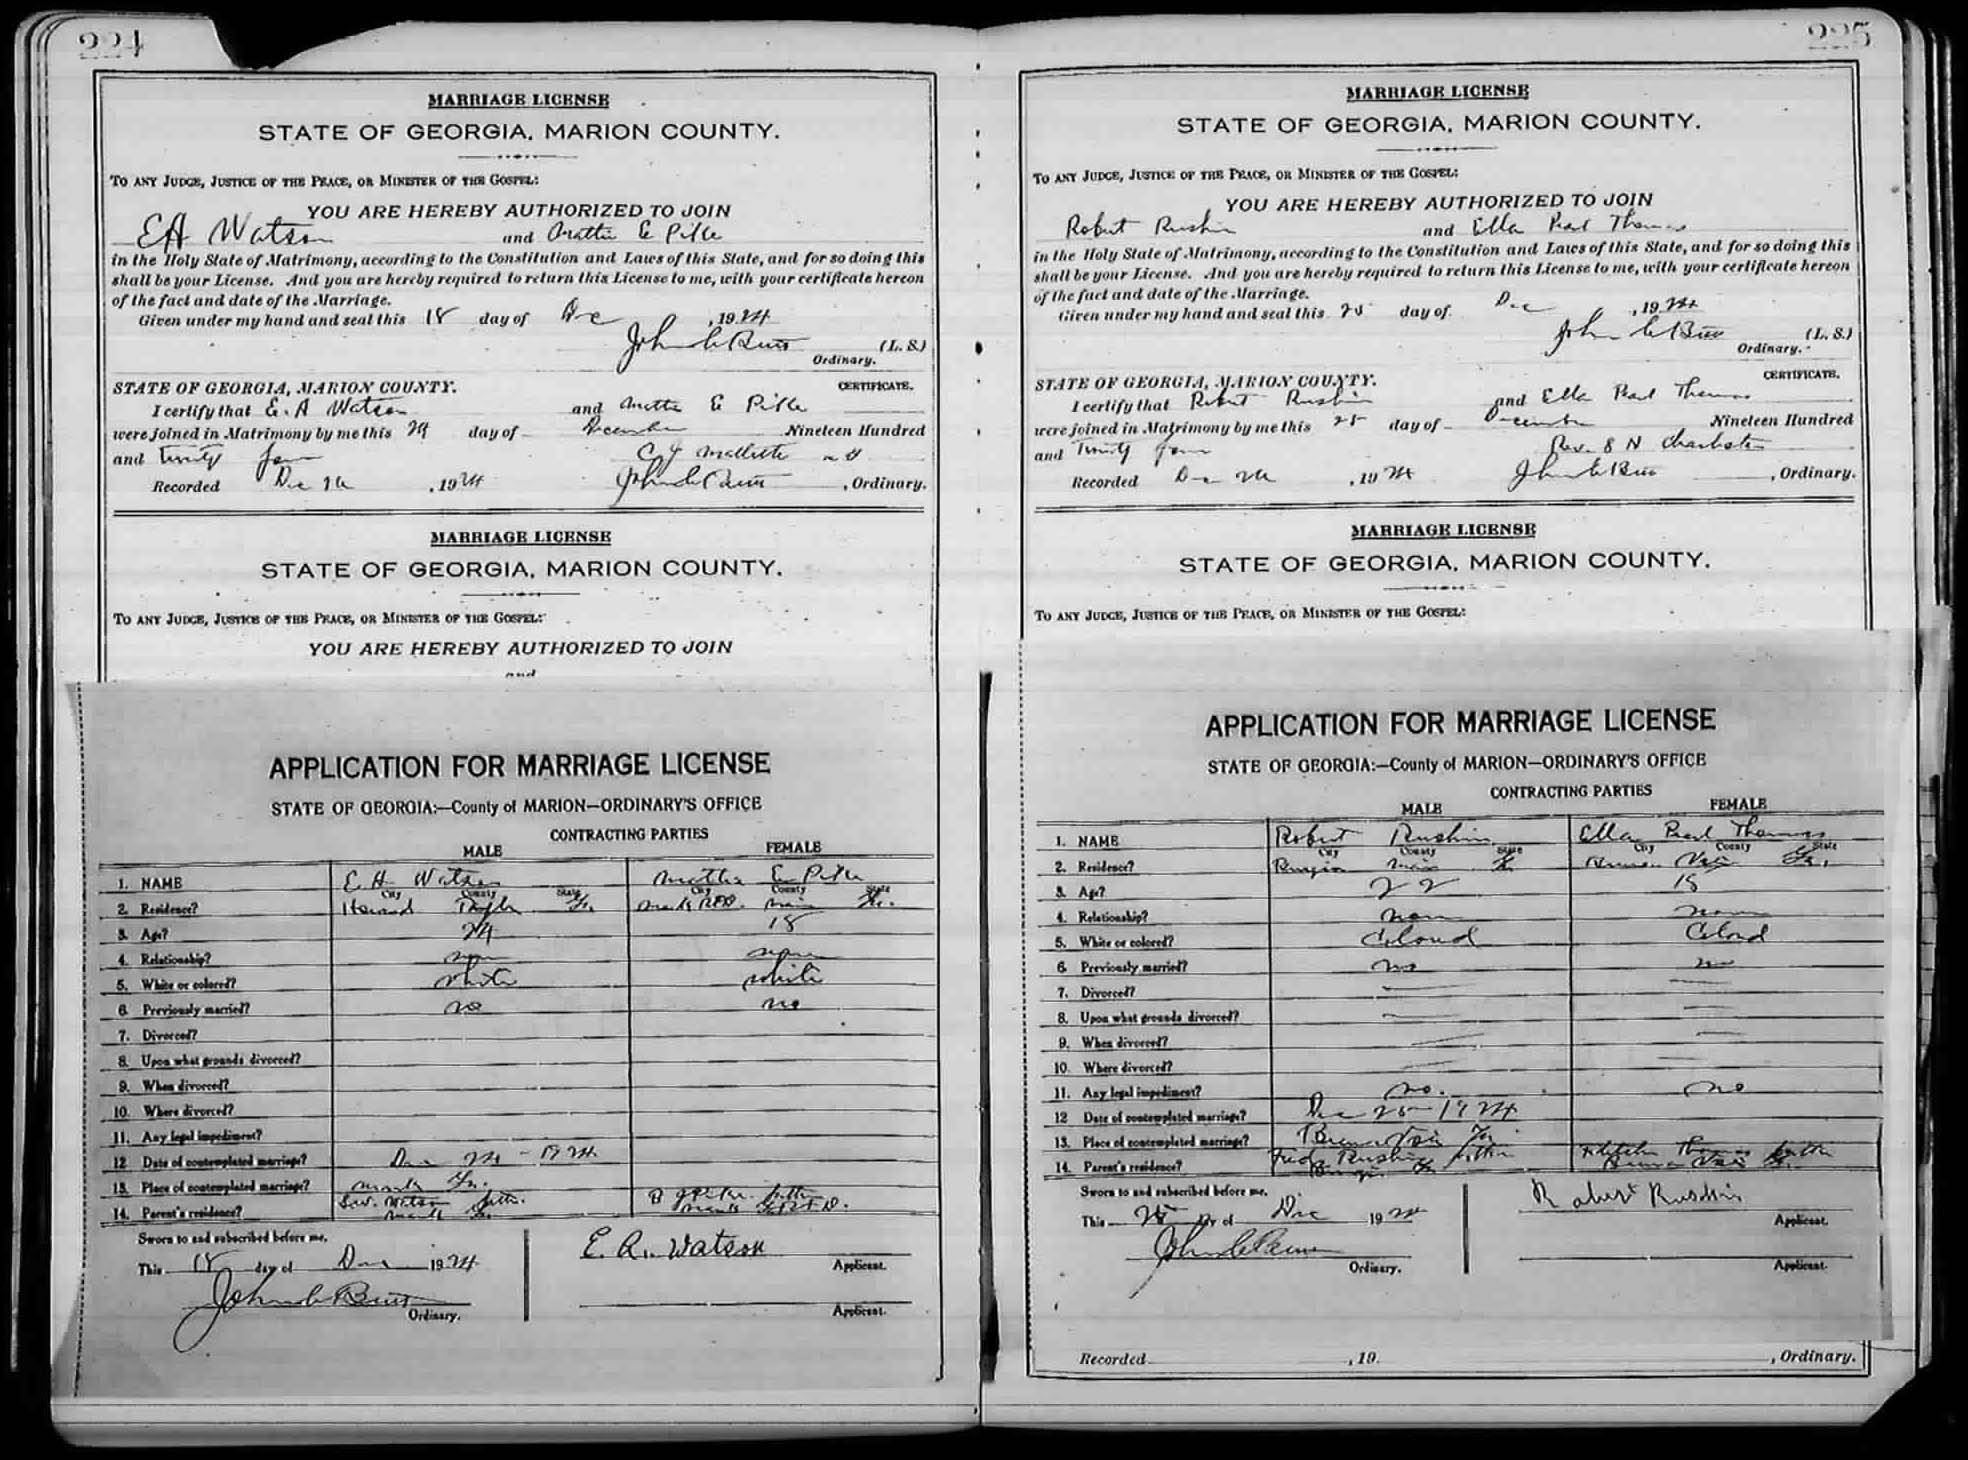 224
MARRIAGE LICENSE
STATE OF GEORGIA, MARION COUNTY.
TO ANY JUDGE, JUSTICE OF THE PEACE, OR MINISTER OF THE GOSPEL:
YOU ARE HEREBY AUTHORIZED TO JOIN
EA Watson and Mattie E Pike
in the Holy State of Matrimony, according to the Constitution and Laws of this State, and for so doing this
shall be your License. And you are hereby required to return this License to me, with your certificate hereon
of the fact and date of the Marriage.
Given under my hand and seal this 18 day of Dec , 1924
John C Butt (L. S.)
Ordinary.
STATE OF GEORGIA, MARION COUNTY. CERTIFICATE.
I certify that E. A Watson and Mattie E Pike
were joined in Matrimony by me this 24 day of December Nineteen Hundred
and Twenty four
Recorded Dec , 1924 John C Butt , Ordinary.
MARRIAGE LICENSE
STATE OF GEORGIA, MARION COUNTY.
TO ANY JUDGE, JUSTICE OF THE PEACE, OR MINISTER OF THE GOSPEL:
YOU ARE HEREBY AUTHORIZED TO JOIN
and
APPLICATION FOR MARRIAGE LICENSE
STATE OF GEORGIA:—County of MARION—ORDINARY'S OFFICE
CONTRACTING PARTIES
MALE FEMALE
1. NAME E. A. Watson Mattie E Pike
City County State City County State
2. Residence? Howard Taylor Ga.
3. Age? 24 18
4. Relationship? none
5. White or colored? White White
6. Previously married? no no
7. Divorced?
8. Upon what grounds divorced?
9. When divorced?
10. Where divorced?
11. Any legal impediment?
12. Date of contemplated marriage? Dec 24 - 1924
13. Place of contemplated marriage? Ga.
14. Parent's residence? Watson Pike
Sworn to and subscribed before me.
This 18 day of Dec 1924
John C Butt
Ordinary.
E. A. Watson
Applicant.
Applicant.
225
MARRIAGE LICENSE
STATE OF GEORGIA, MARION COUNTY.
TO ANY JUDGE, JUSTICE OF THE PEACE, OR MINISTER OF THE GOSPEL:
YOU ARE HEREBY AUTHORIZED TO JOIN
Robert Rushin and Ella Pearl Thomas
in the Holy State of Matrimony, according to the Constitution and Laws of this State, and for so doing this
shall be your License. And you are hereby required to return this License to me, with your certificate hereon
of the fact and date of the Marriage.
Given under my hand and seal this 25 day of Dec , 1924
John C Butt (L. S.)
Ordinary.
STATE OF GEORGIA, MARION COUNTY. CERTIFICATE.
I certify that Robert Rushin and Ella Pearl Thomas
were joined in Matrimony by me this 25 day of December Nineteen Hundred
and Twenty four Rev. S N
Recorded Dec , 1924 John C Butt , Ordinary.
MARRIAGE LICENSE
STATE OF GEORGIA, MARION COUNTY.
TO ANY JUDGE, JUSTICE OF THE PEACE, OR MINISTER OF THE GOSPEL:
APPLICATION FOR MARRIAGE LICENSE
STATE OF GEORGIA:—County of MARION—ORDINARY'S OFFICE
CONTRACTING PARTIES
MALE FEMALE
1. NAME Robert Rushin Ella Pearl Thomas
City County State City County State
2. Residence? Ga.
3. Age? 22 18
4. Relationship? none none
5. White or colored? Colored Colored
6. Previously married? no no
7. Divorced?
8. Upon what grounds divorced?
9. When divorced?
10. Where divorced?
11. Any legal impediment? no. no
12 Date of contemplated marriage? Dec 25 - 1924
13. Place of contemplated marriage? Buena Vista Ga
14. Parent's residence? Rushin father Thomas father
Buena Vista Ga.
Sworn to and subscribed before me.
This 25 day of Dec 1924
John C Butt
Ordinary.
Robert Rushin
Applicant.
Applicant.
Recorded , 19 , Ordinary.